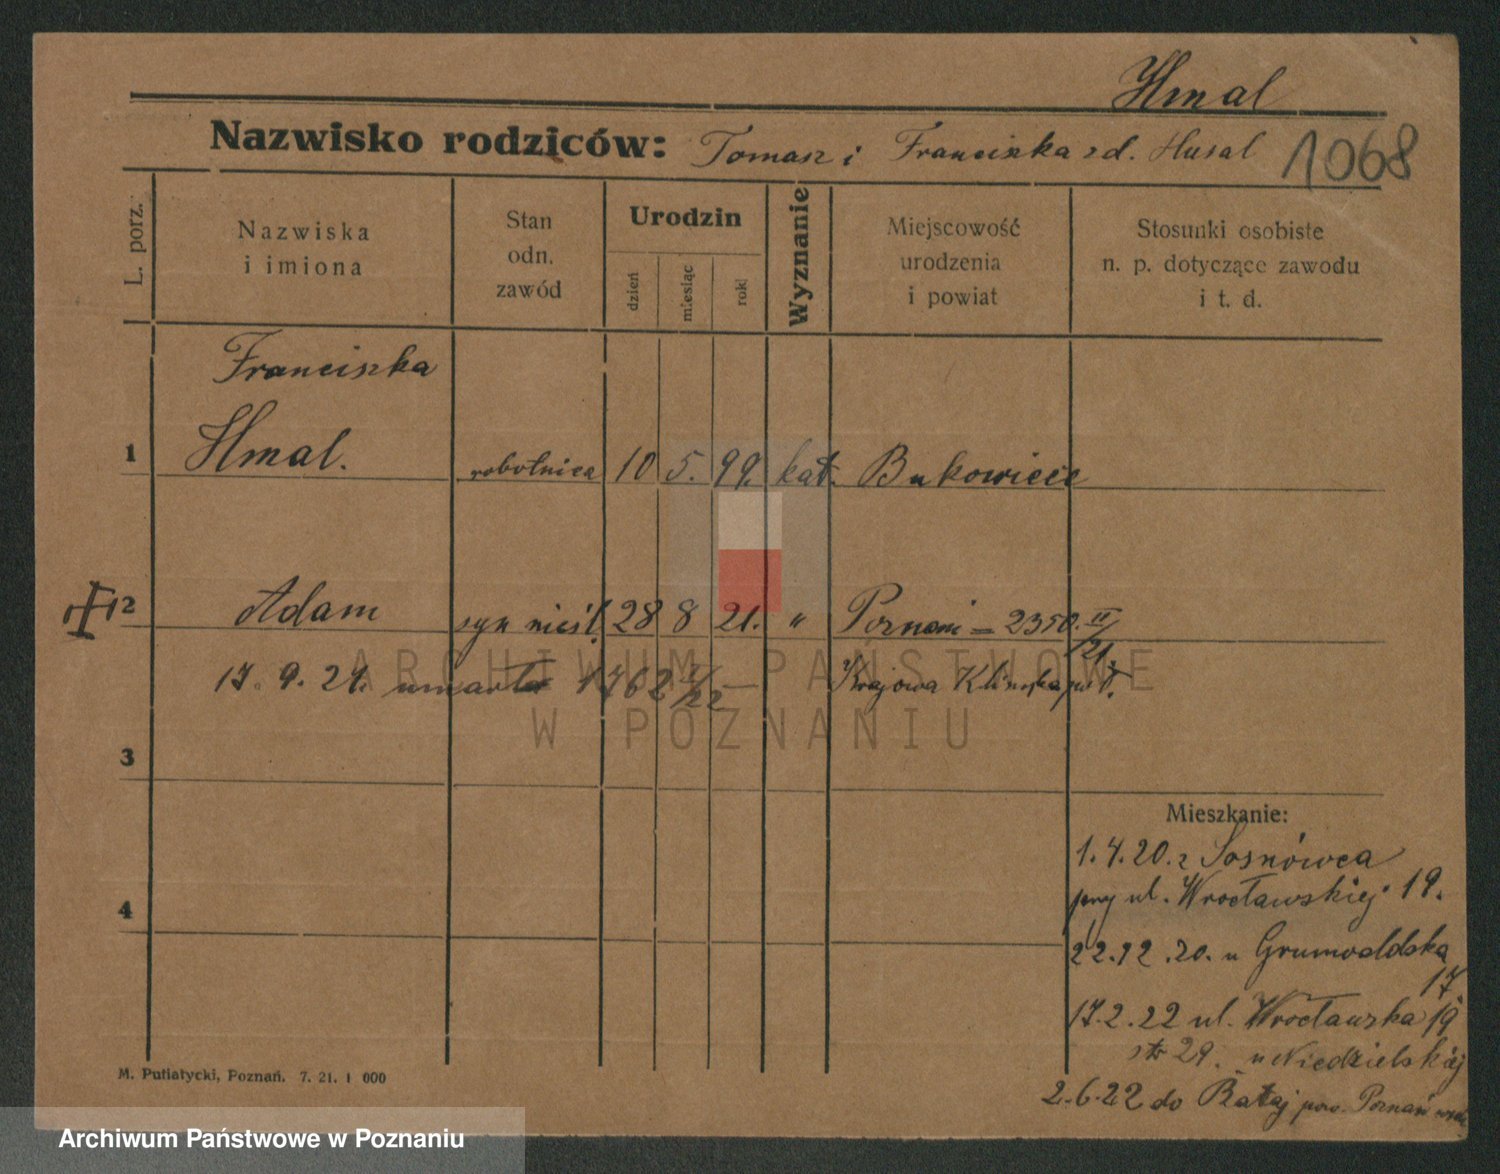 Hmal
Nazwisko rodziców: Tomasz i Franciszka zd. Husal
1068
L. porz.
Nazwiska
i imiona
Stan
odn.
zawód
Urodzin
dzień
miesiąc
rok
Wyznanie
Miejscowość
urodzenia
i powiat
Stosunki osobiste
n. p. dotyczące zawodu
i t. d.
Franciszka
1 Hmal. robotnica 10 5. 99. kat. Bukowiecc
2 Adam syn nieśl. 28 8 21. " Poznań = 2350. II/21
17. 9. 21. umarł 1762 /22 — Krajowa Klinika
ARCHIWUM PAŃSTWOWE
W POZNANIU
3
Mieszkanie:
1.4.20. z Sosnówca
przy ul. Wrocławskiej 19.
4
22.12.20. u Grunwaldska
17
17.2.22 ul. Wrocławska 19
str 29. u Niedzielskiej
2.6.22 do Rataj pow. Poznań
M. Putiatycki, Poznań. 7. 21. 1 000
Archiwum Państwowe w Poznaniu